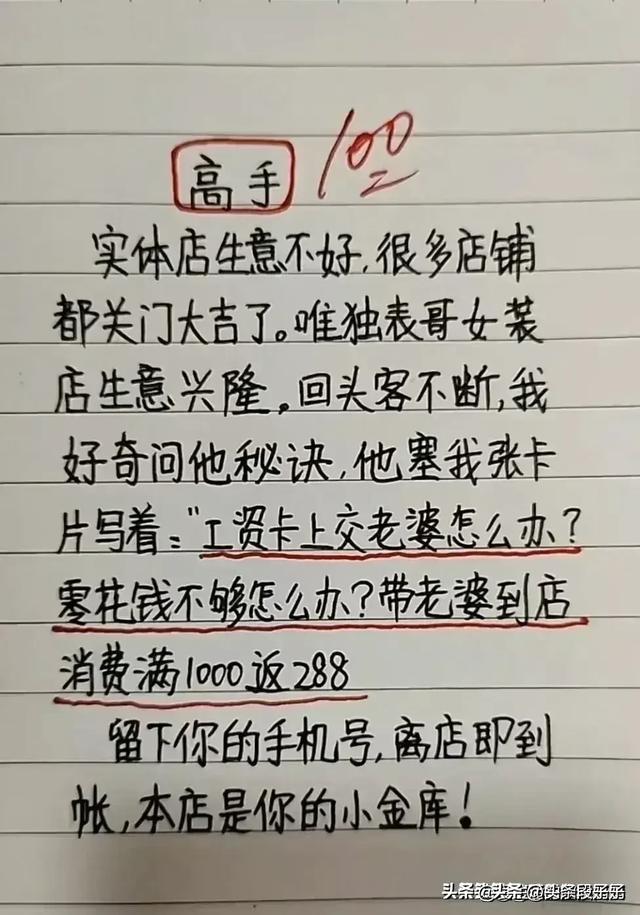 高手 100
实体店生意不好,很多店铺
都关门大吉了。唯独表哥女装
店生意兴隆。回头客不断,我
好奇问他秘诀,他塞我张卡
片写着:"工资卡上交老婆怎么办?
零花钱不够怎么办?带老婆到店
消费满1000返288
留下你的手机号,离店即到
帐,本店是你的小金库!
头条 @